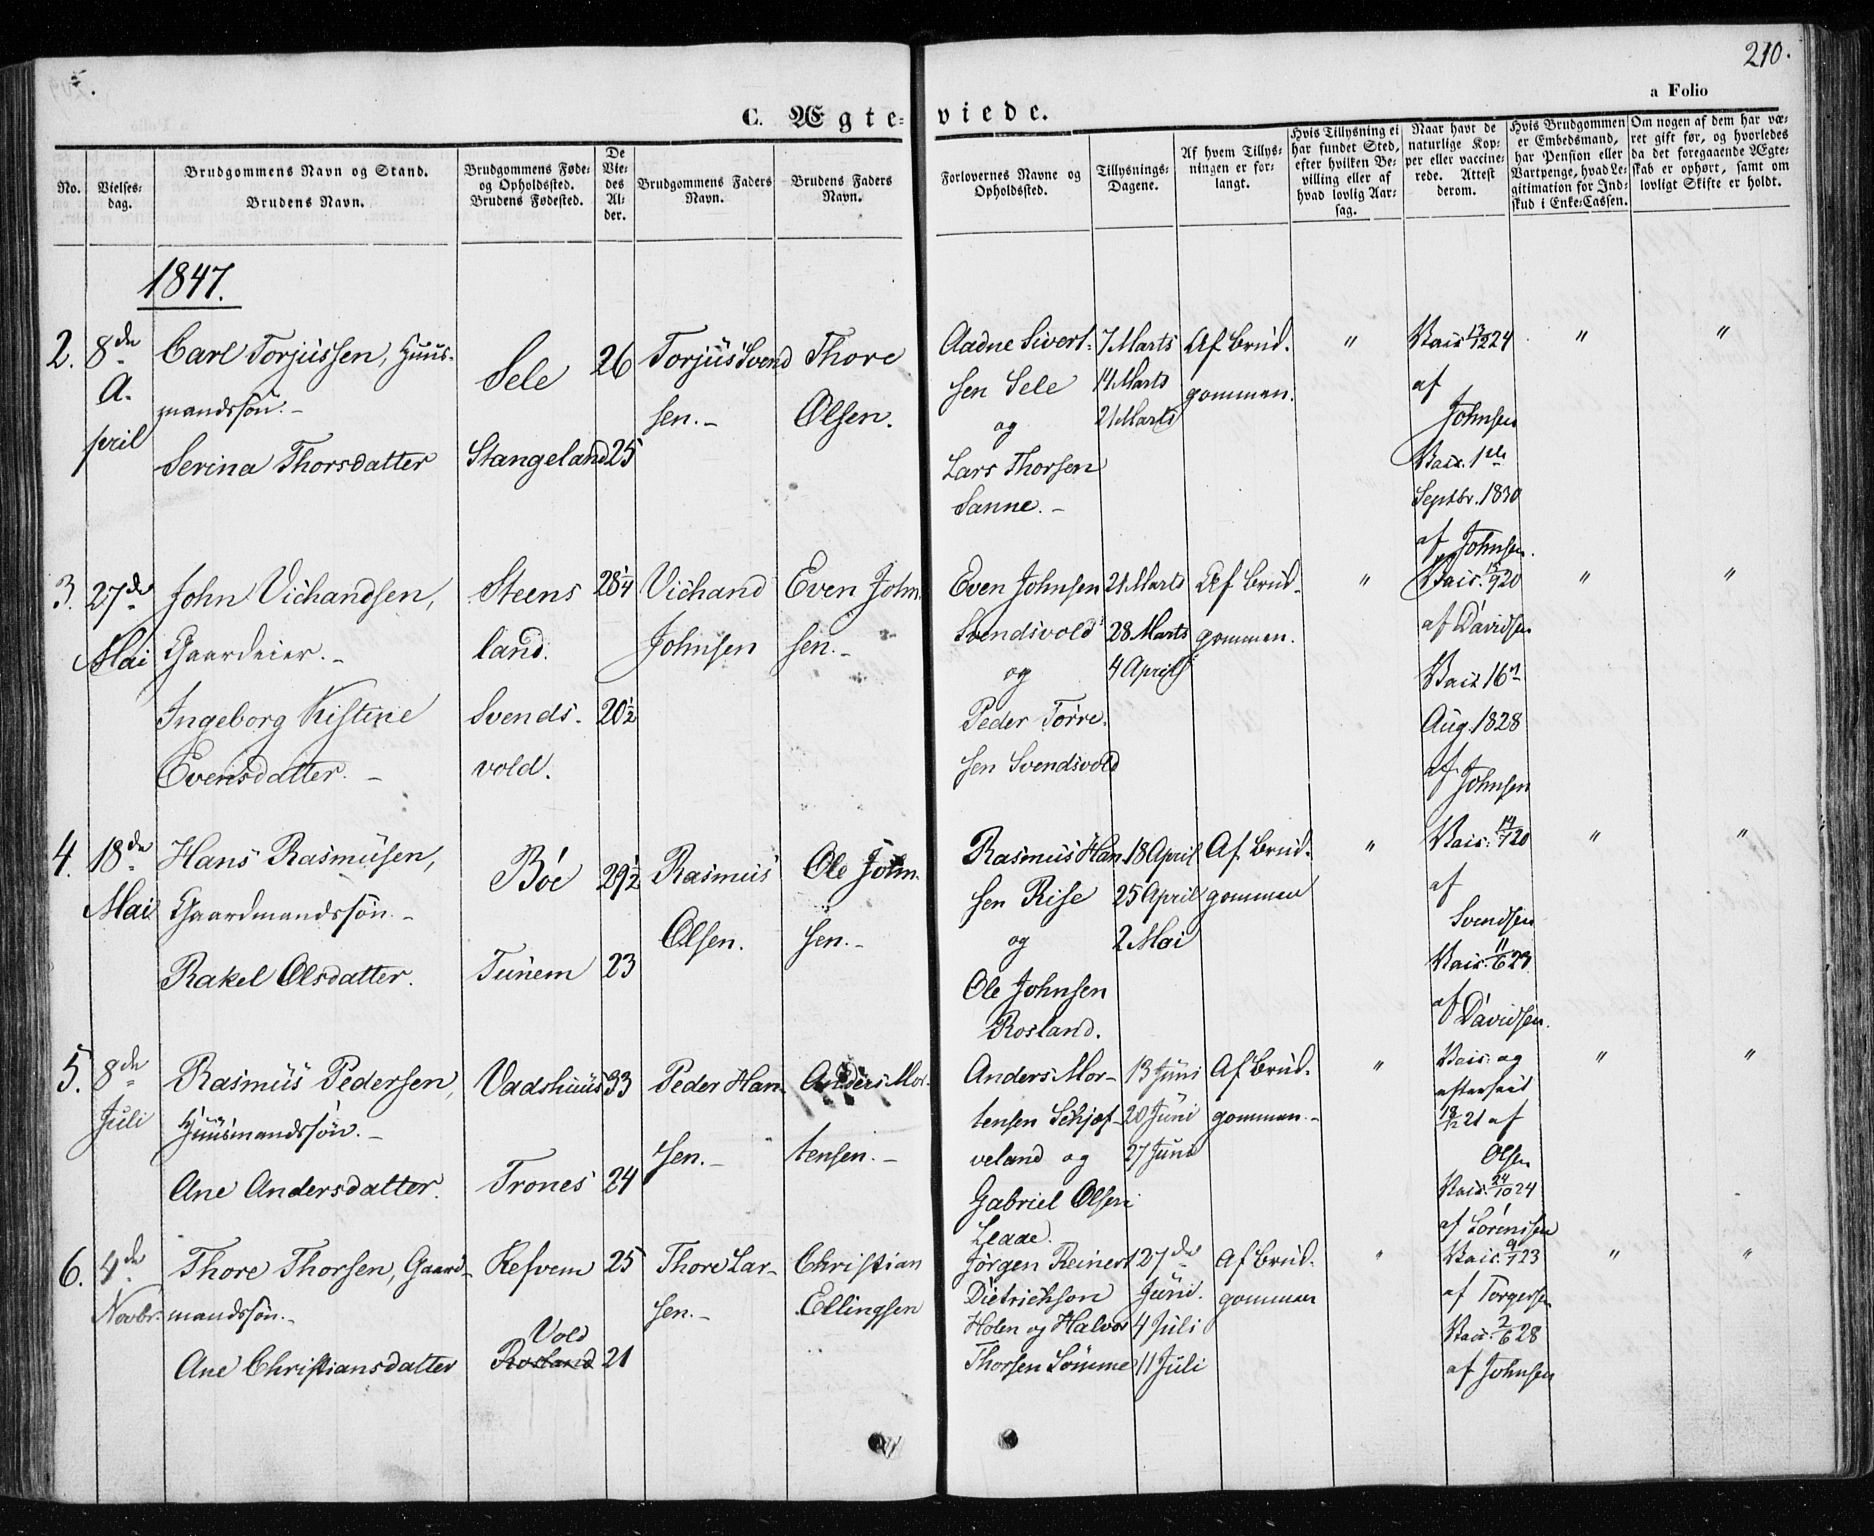 210.
a Folio
C. Ægte-viede.
No.
Vielses-
dag.
Brudgommens Navn og Stand.
Brudens Navn.
Brudgommens Føde-
og Opholdssted.
Brudens Fødested.
De
Vie-
des
Al-
der.
Brudgommens Faders
Navn.
Brudens Faders
Navn.
Forlovernes Navne og
Opholdssted.
Tillysnings-
Dagene.
Af hvem Tillys-
ningen er for-
langt.
Hvis Tillysning ei
har fundet Sted,
efter hvilken Be-
villing eller af
hvad lovlig Aar-
sag.
Naar havt de
naturlige Kop-
per eller vaccine-
rede. Attest
derom.
Hvis Brudgommen
er Embedsmand,
har Pension eller
Vartpenge, hvad Le-
gitimation for Ind-
skud i Enke-Cassen.
Om nogen af dem har væ-
ret gift før, og hvorledes
da det foregaaende Ægte-
skab er ophørt, samt om
lovligt Skifte er holdt.
1847.
2.
8de
A-
pril
Carl Torjussen, Huus-
mandssøn. -
Serina Thorsdatter
Sele
Stangeland
26
25
Torjus Svend
sen. -
Thore
Olsen.
Aadne Sivert-
sen Sele
og
Lars Thorsen
Sanne. -
7 Marts
14 Marts
21 Marts
Af Brud-
gommen.
"
Vacc. 13/12 24
af
Johnsen
Vacc. 1ste
Septbr. 1830
af Johnsen.
"
"
3.
27de
Mai
John Vichandsen,
Gaardeier. -
Ingeborg Kistine
Evensdatter. -
Steens
land.
Svends-
vold.
28 1/4
20 1/2
Vichand
Johnsen
Even John-
sen. -
Even Johnsen
Svendsvold
og
Peder Torre-
sen Svendsvold
21 Marts
28 Marts
4 April
Af Brud-
gommen.
"
Vacc. 15/9 20
af Davidsen
Vacc 16n
Aug. 1828
af Johnsen
"
"
4.
18de
Mai
Hans Rasmusen,
Gaardmandssøn. -
Rakel Olsdatter.
Bóe
Tunem
29 1/2
23
Rasmus
Olsen.
Ole John-
sen. -
Rasmus Han-
sen Rise
og
Ole Johnsen
Rosland.
18 April
25 April
2 Mai
Af Brud-
gommen
"
Vacc. 14/7 20
af
Svendsen
Vacc. 11/6 23
af Davidsen.
"
"
5.
8de
Juli
Rasmus Pedersen,
Huusmandssøn. -
Ane Andersdatter.
Vadshuus
Trones
33
24
Peder Han-
sen. -
Anders Mor-
tensen. -
Anders Mor-
tensen Schjef-
veland og
Gabriel Olsen
Leaae.
13 Juni
20 Juni
27 Juni
Af Brud-
gommen. -
"
Vacc. og
efterseet
18/12 21 af
Olsen
Vacc. 24/10 24
af Sørensen
"
"
6.
4de
Novbr.
Thore Thorsen, Gaard-
mandssøn. -
Ane Christiansdatter
Refvem
Vold
Rosland
25
21
Thore Lar-
sen. -
Christian
Ellingsen
Jørgen Reinert
Dietrichson
Holen og Halvor
Thorsen Sømme
27de
Juni.
4 Juli
11 Juli
Af Brud-
gommen
"
Vacc. 9/7 23
af Torgersen
Vacc. 2/6 28
af Johnsen
"
"